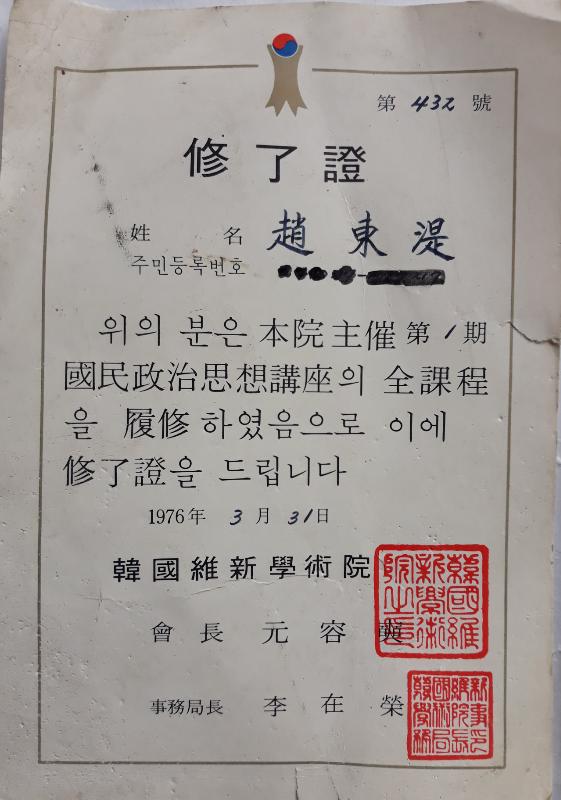 第 432 號
修了證
姓名 趙東湜
주민등록번호
위의 분은 本院主催 第 1 期
國民政治思想講座의 全課程
을 履修하였음으로 이에
修了證을 드립니다
1976年 3 月 31日
韓國維新學術院
會長 元容奭
事務局長 李在榮